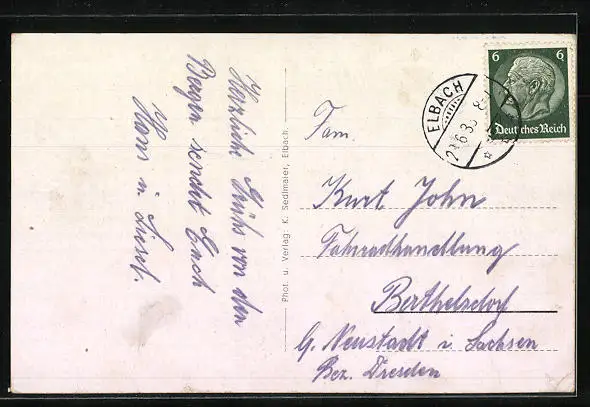 Herzliche Grüße von den
Bergen sendet Euch
Hans u. Liesel.
Phot. u. Verlag: K. Sedlmaier, Elbach.
ELBACH
6 6
Deutsches Reich
Fam.
Kurt John
Fahrradhandlung
Berthelsdorf
b. Neustadt i. Sachsen
Bez. Dresden